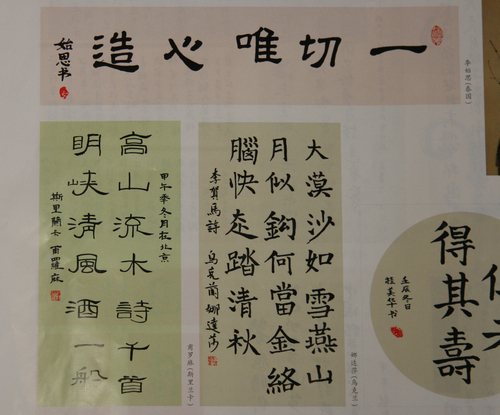 一切唯心造
始思书
李始思(泰国)
高山流水詩千首
明峡清風酒一船
甲午季冬月在北京
斯里蘭卡 羅麻
罗麻(斯里兰卡)
大漠沙如雪燕山
月似鈎何當金絡
腦快走踏清秋
李賀馬詩 烏克蘭 娜達莎
娜达莎(乌克兰)
得其壽
壬辰冬日
桂美华书